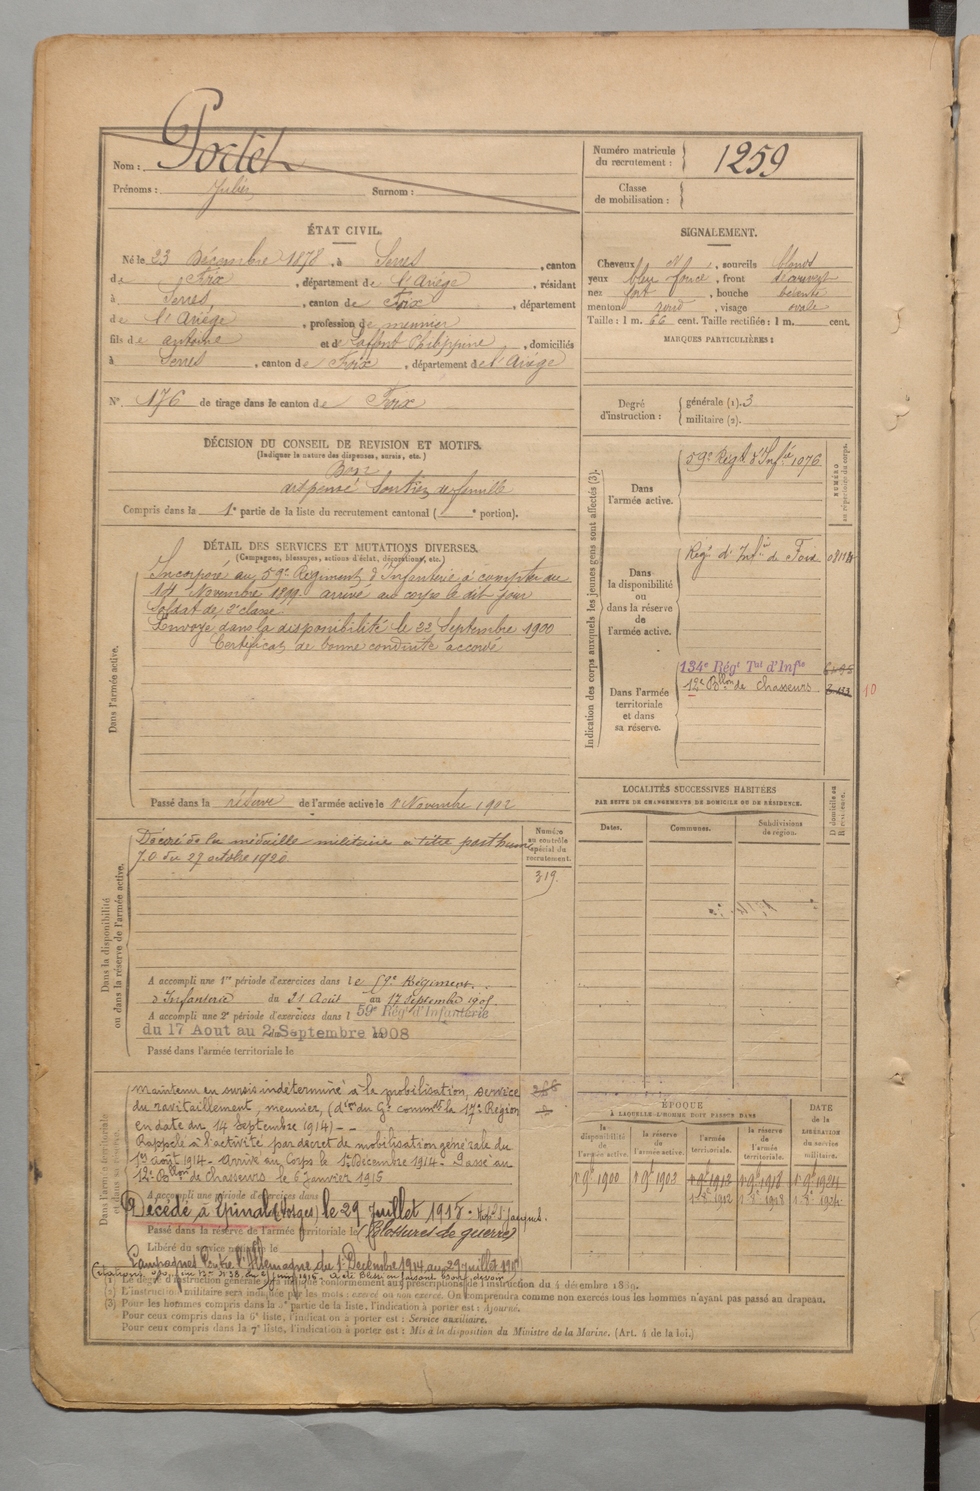 Nom : Portet
Prénoms : Jules Surnom :
Numéro matricule du recrutement : 1259
Classe de mobilisation :
ÉTAT CIVIL.
Né le 23 Décembre 1878, à Serres, canton
de Foix, département de l'Ariège, résidant
à Serres, canton de Foix, département
de l'Ariège, profession de meunier
fils de antoine et de Laffont Philippine, domiciliés
à Serres, canton de Foix, département de l'Ariège
N° 176 de tirage dans le canton de Foix
DÉCISION DU CONSEIL DE REVISION ET MOTIFS.
(Indiquer la nature des dispenses, sursis, etc.)
Bon
dispensé Soutien de famille
Compris dans la 1e partie de la liste du recrutement cantonal ( e portion).
DÉTAIL DES SERVICES ET MUTATIONS DIVERSES.
(Campagnes, blessures, actions d'éclat, décorations, etc.)
Dans l'armée active.
Incorporé au 59e Régiment d'Infanterie à compter du
14 Novembre 1899 arrivé au corps le dit jour
Soldat de 2e classe
Envoyé dans la disponibilité le 22 Septembre 1900
Certificat de bonne conduite accordé
Passé dans la réserve de l'armée active le 1 Novembre 1902
Dans la disponibilité
ou dans la réserve de l'armée active.
Décoré de la médaille militaire a titre posthume
J.O du 27 octobre 1920
Numéro au contrôle spécial du recrutement.
319.
A accompli une 1re période d'exercices dans le 59e Régiment
d'Infanterie du 21 Août au 17 Septembre 1905
A accompli une 2e période d'exercices dans l 59e Rég' d'Infanterie
du 17 Aout au 2 Septembre 1908
Passé dans l'armée territoriale le
Dans l'armée territoriale
et dans sa réserve.
maintenu en sursis indéterminé à la mobilisation, service
du ravitaillement, meunier, (don du Gl commt la 17e Région
en date du 14 Septembre 1914) - -
Rappelé à l'activité par decret de mobilisation générale du
1er août 1914 - Arrivé au Corps le 1er Décembre 1914 - Passé au
12e Bllon de Chasseurs le 6 janvier 1915
A accompli une période d'exercices dans
Décédé à Epinal (Vosges) le 29 Juillet 1915
Passé dans la réserve de l'armée territoriale le (Blessures de guerre)
Libéré du service militaire le
Campagnes Contre l'Allemagne du 1er Décembre 1914 au 29 juillet 1915
(1) Le degré d'instruction générale sera indiqué conformément aux prescriptions de l'instruction du 4 décembre 1889.
(2) L'instruction militaire sera indiquée par les mots : exercé ou non exercé. On comprendra comme non exercés tous les hommes n'ayant pas passé au drapeau.
(3) Pour les hommes compris dans la 5e partie de la liste, l'indication à porter est : Ajourné.
Pour ceux compris dans la 6e liste, l'indication à porter est : Service auxiliaire.
Pour ceux compris dans la 7e liste, l'indication à porter est : Mis à la disposition du Ministre de la Marine. (Art. 4 de la loi.)
SIGNALEMENT.
Cheveux , sourcils blonds
yeux bleu foncé, front découvert
nez fort, bouche
menton rond, visage ovale
Taille : 1 m. 66 cent. Taille rectifiée : 1 m. cent.
MARQUES PARTICULIÈRES :
Degré d'instruction : générale (1). 3
militaire (2).
Indication des corps auxquels les jeunes gens sont affectés (3).
NUMÉRO au répertoire du corps.
Dans l'armée active.
59e Régt d'Infie 1076
Dans la disponibilité ou dans la réserve de l'armée active.
Régt d'Infie de Foix
Dans l'armée territoriale et dans sa réserve.
134e Régt Tal d'Infie
12e Bllon de Chasseurs
10
LOCALITÉS SUCCESSIVES HABITÉES
PAR SUITE DE CHANGEMENTS DE DOMICILE OU DE RÉSIDENCE.
Dates. Communes. Subdivisions de région. D domicile ou R résidence.
ÉPOQUE
À LAQUELLE L'HOMME DOIT PASSER DANS
DATE de la LIBÉRATION du service militaire.
la disponibilité de l'armée active. la réserve de l'armée active. l'armée territoriale. la réserve de l'armée territoriale.
1 9e 1900 1 9e 1903 1 9e 1913 1 9e 1918 1 9e 1924